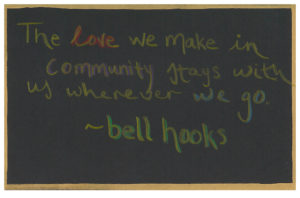 The love we make in
community stays with
us wherever we go.
~bell hooks